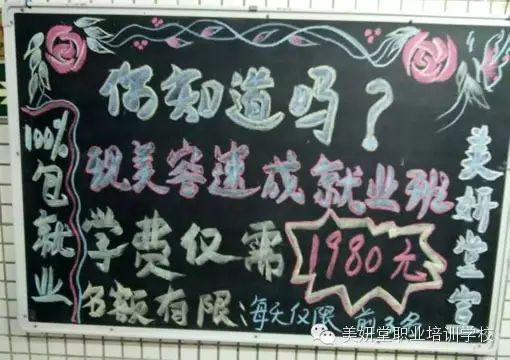 你知道吗?
现美容速成就业班
学费仅需
1980元
名额有限:每天仅限前3名
100%包就业
美妍堂宣
美妍堂职业培训学校